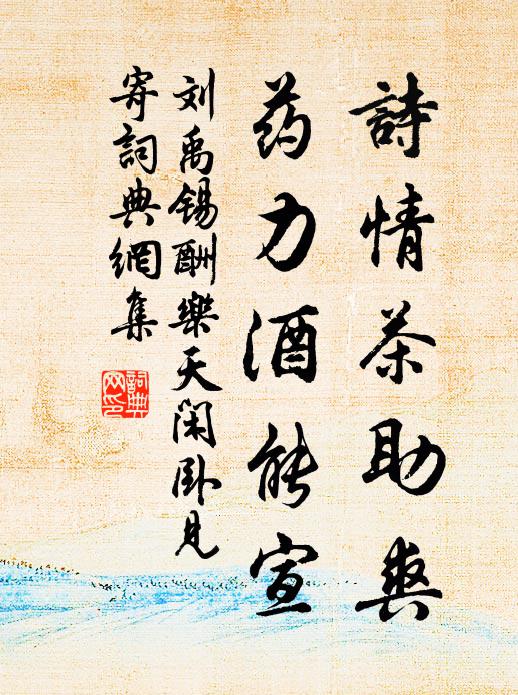 詩情茶助爽
药力酒能宣
刘禹锡酬樂天闲卧見
寄詞典網集
詞典
网印